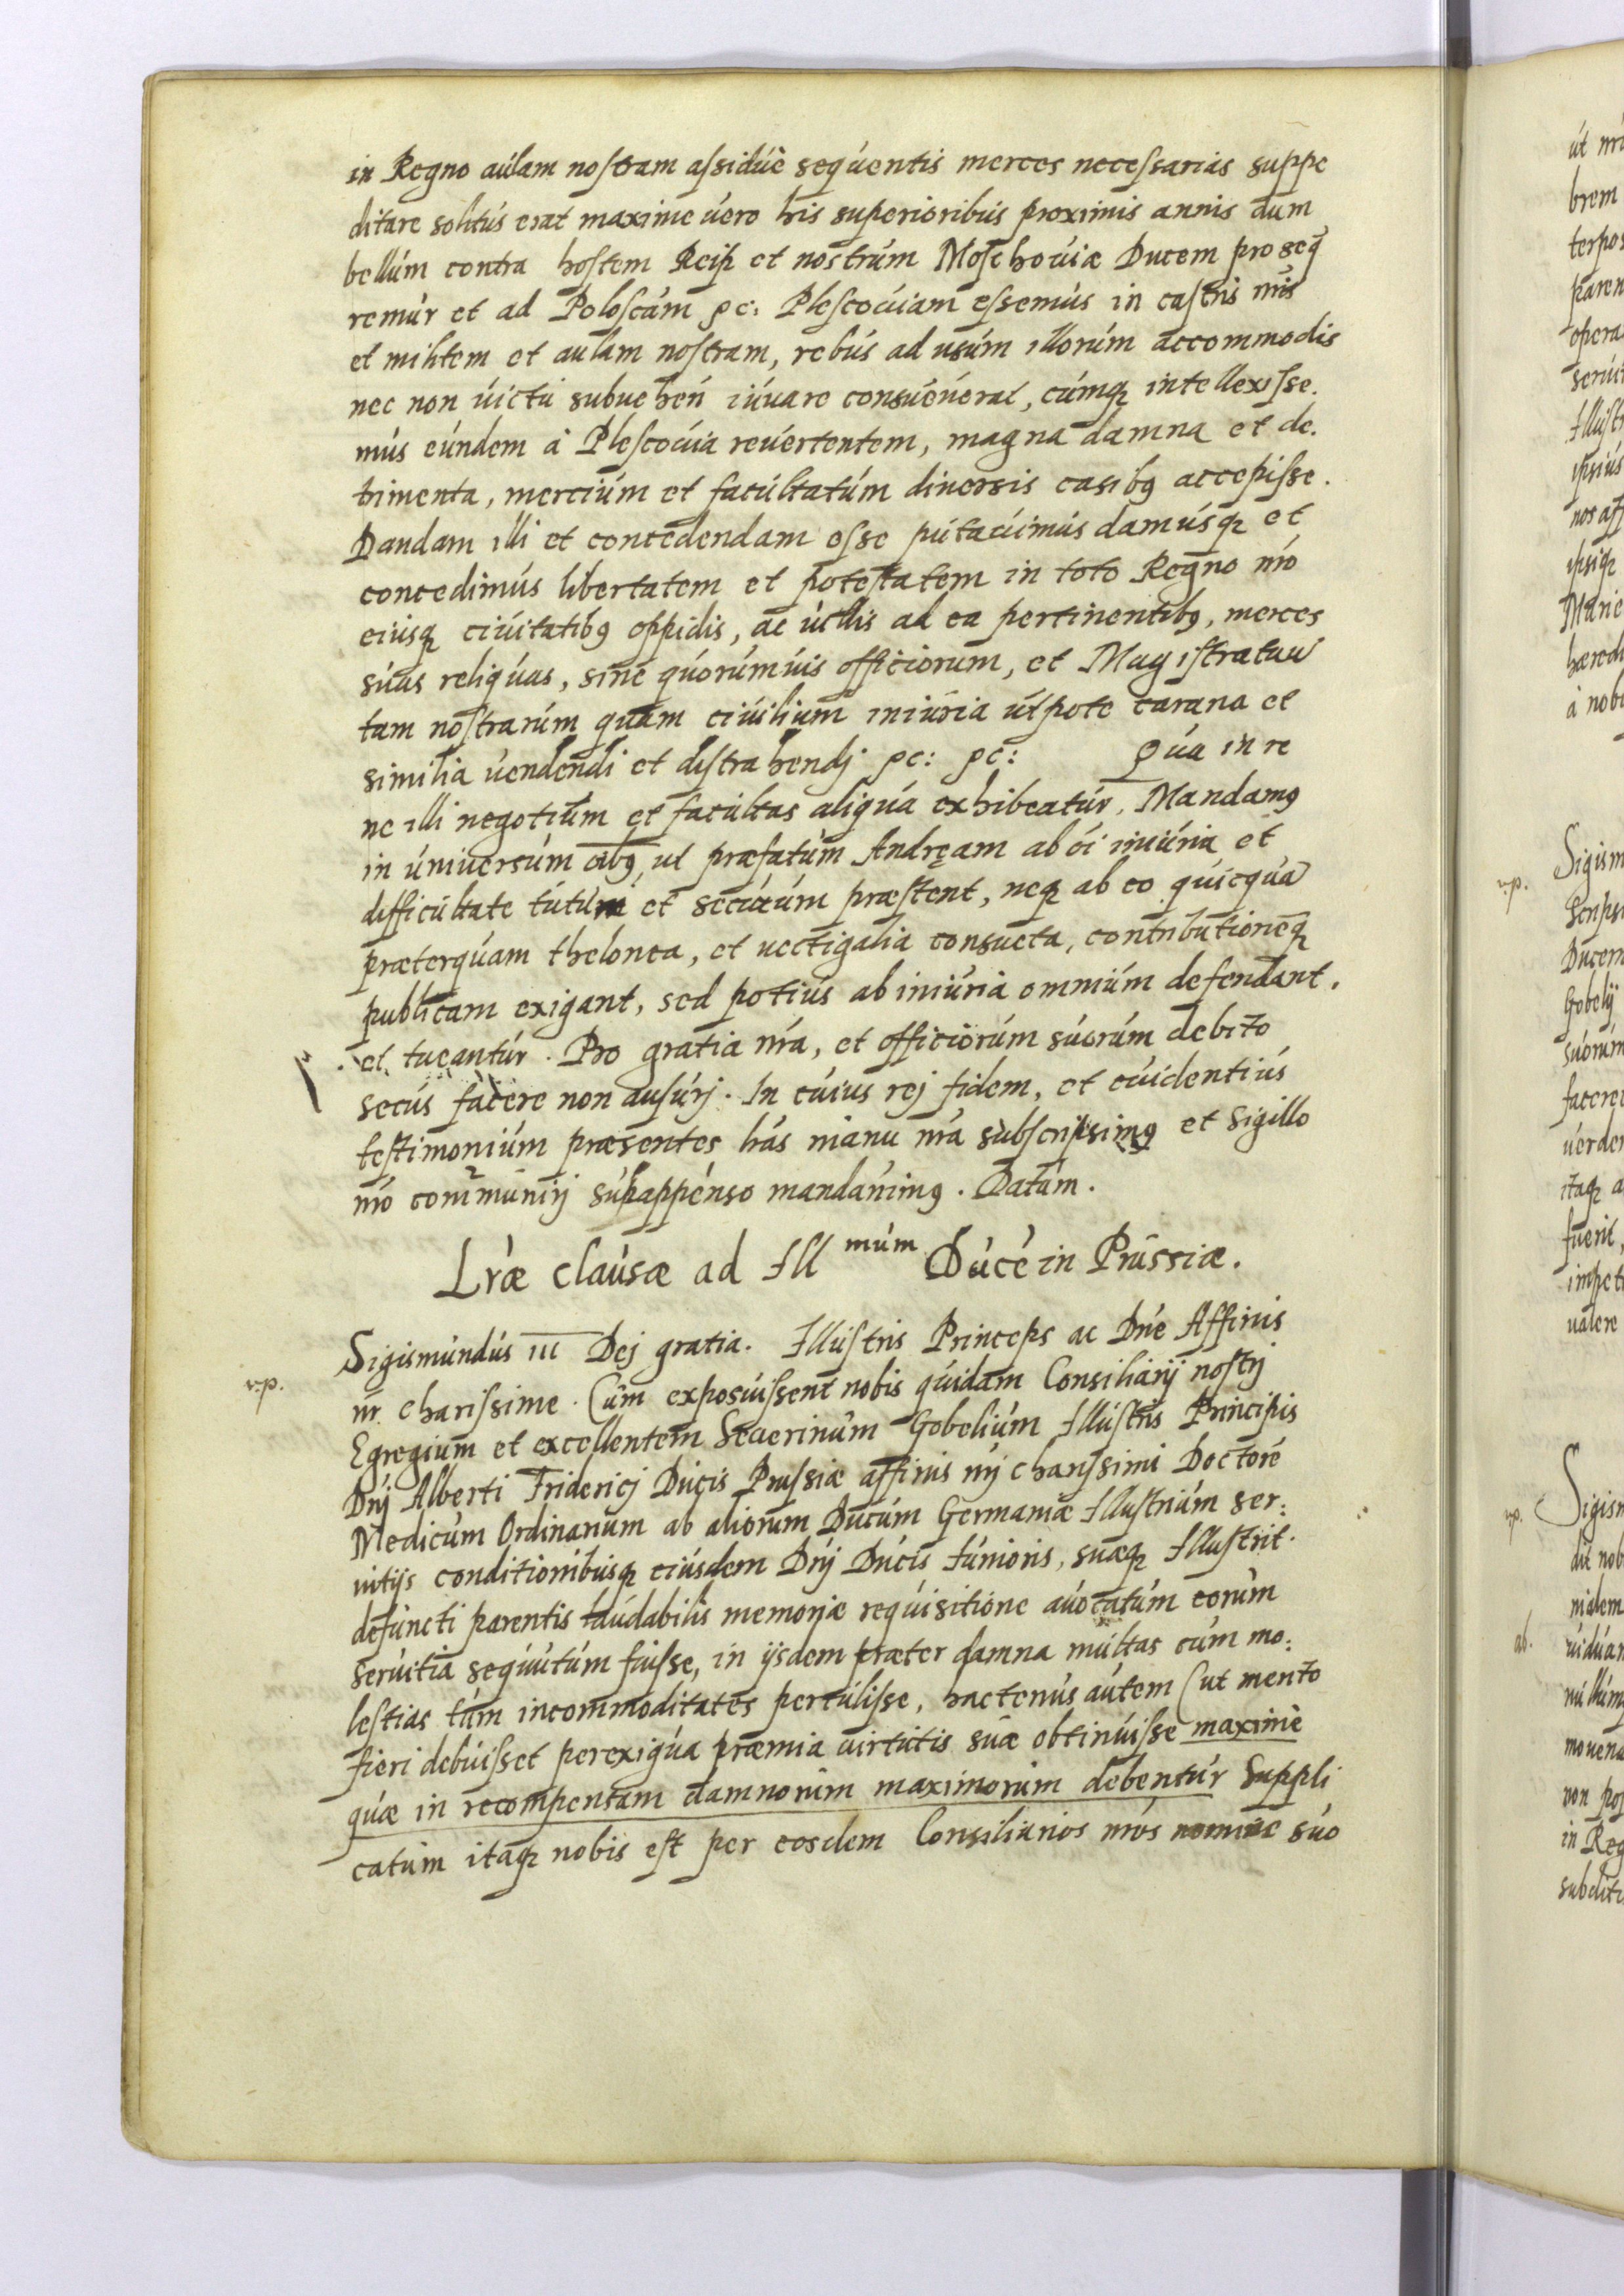 in Regno aulam nostram assidue sequentis merces necessarias suppe
ditare solitus erat maxime vero his superioribus proximis annis dum
bellum contra hostem Reip et nostrum Moschoviæ Ducem proseq̃
remur et ad Poloscam ꝛc: Plescoviam essemus in castris nr̃is
et militem et aulam nostram, rebus ad usum illorum accommodis
nec non victu subuehen iuvare consueverat, cumq; intellexisse.
mus eundem a Plescovia revertentem, magna damna et de.
trimenta, mercium et facultatum diversis casibꝰ accepisse.
Dandam illi et concedendam esse putavimus damusq; et
concedimus libertatem et potestatem in toto Regno nr̃o
eiusq; civitatibꝰ oppidis, ac villis ad ea pertinentibꝰ, merces
suas reliquas, sine quorumvis officiorum, et Magistratuũ
tam nostrarum quam civilium iniuria utpote carana et
similia vendendi et distrahendj ꝛc: ꝛc: Qua in re
ne illi negotium et facultas aliqua exhibeatur. Mandamꝰ
in universum oĩbꝰ, ut præfatum Andręam ab oĩ iniuria et
difficultate tutum et securum præstent, neq; ab eo quicquã
præterquam thelonea, et vectigalia consueta, contributionẽq;
publicam exigant, sed potius ab iniuria omnium defendant.
et tueantur. Pro gratia nr̃a, et officiorum suorum debito
secus facere non ausurj. In cuius rej fidem, et evidentius
testimonium præsentes has manu nr̃a subscripsimꝰ et Sigillo
nr̃o communirj subappenso mandavimꝰ. Datum.
Lr̃æ clausæ ad Ill mum Ducẽ in Prussiæ.
Sigismundus III Dej gratia. Illustris Princeps ac Dn̄e Affinis
r.p.
nr̃ charissime. Cum exposuissent nobis quidam Consiliarij nostrj
Egregium et excellentem Severinum Gobelium Illustris Principis
Dn̄j Alberti Fridericj Ducis Prussiæ affinis nr̃j charissimi Doctorẽ
Medicum Ordinarium ab aliorum Ducum Germaniæ Illustrium ser:
vitijs conditionibusq; eiusdem Dn̄j Ducis Iunioris, suæq; Illustrit.
defuncti parentis laudabilis memoriæ requisitione avocatum eorum
servitia sequutum fuisse, in ijsdem præter damna multas cum mo:
lestias tum incommoditates pertulisse, hactenus autem (ut merito
fieri debuisset perexigua præmia virtutis suæ obtinuisse maximè
quæ in recompensam damnorum maximorum debentur Suppli
catum itaq; nobis est per eosdem Consiliarios nr̃os nomine suo